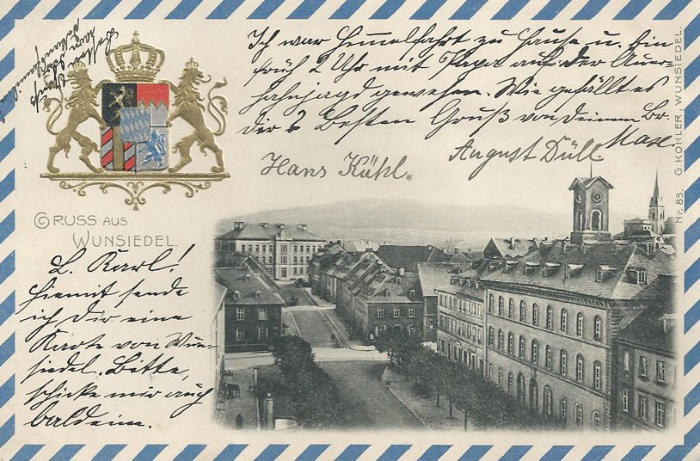 Ich war Himmelfahrt zu Hause u. bin
früh 2 Uhr mit Papa auf der Auer-
hahnjagd gewesen. Wie gefällt es
dir? Besten Gruß von deinem Br.
Max.
Hans Kühl.
August Düll
GRUSS AUS
WUNSIEDEL.
L. Karl!
Hiemit sende
ich Dir eine
Karte von Wun-
siedel. Bitte,
schicke mir auch
bald eine.
Nr. 83. G. KÖHLER, WUNSIEDEL.